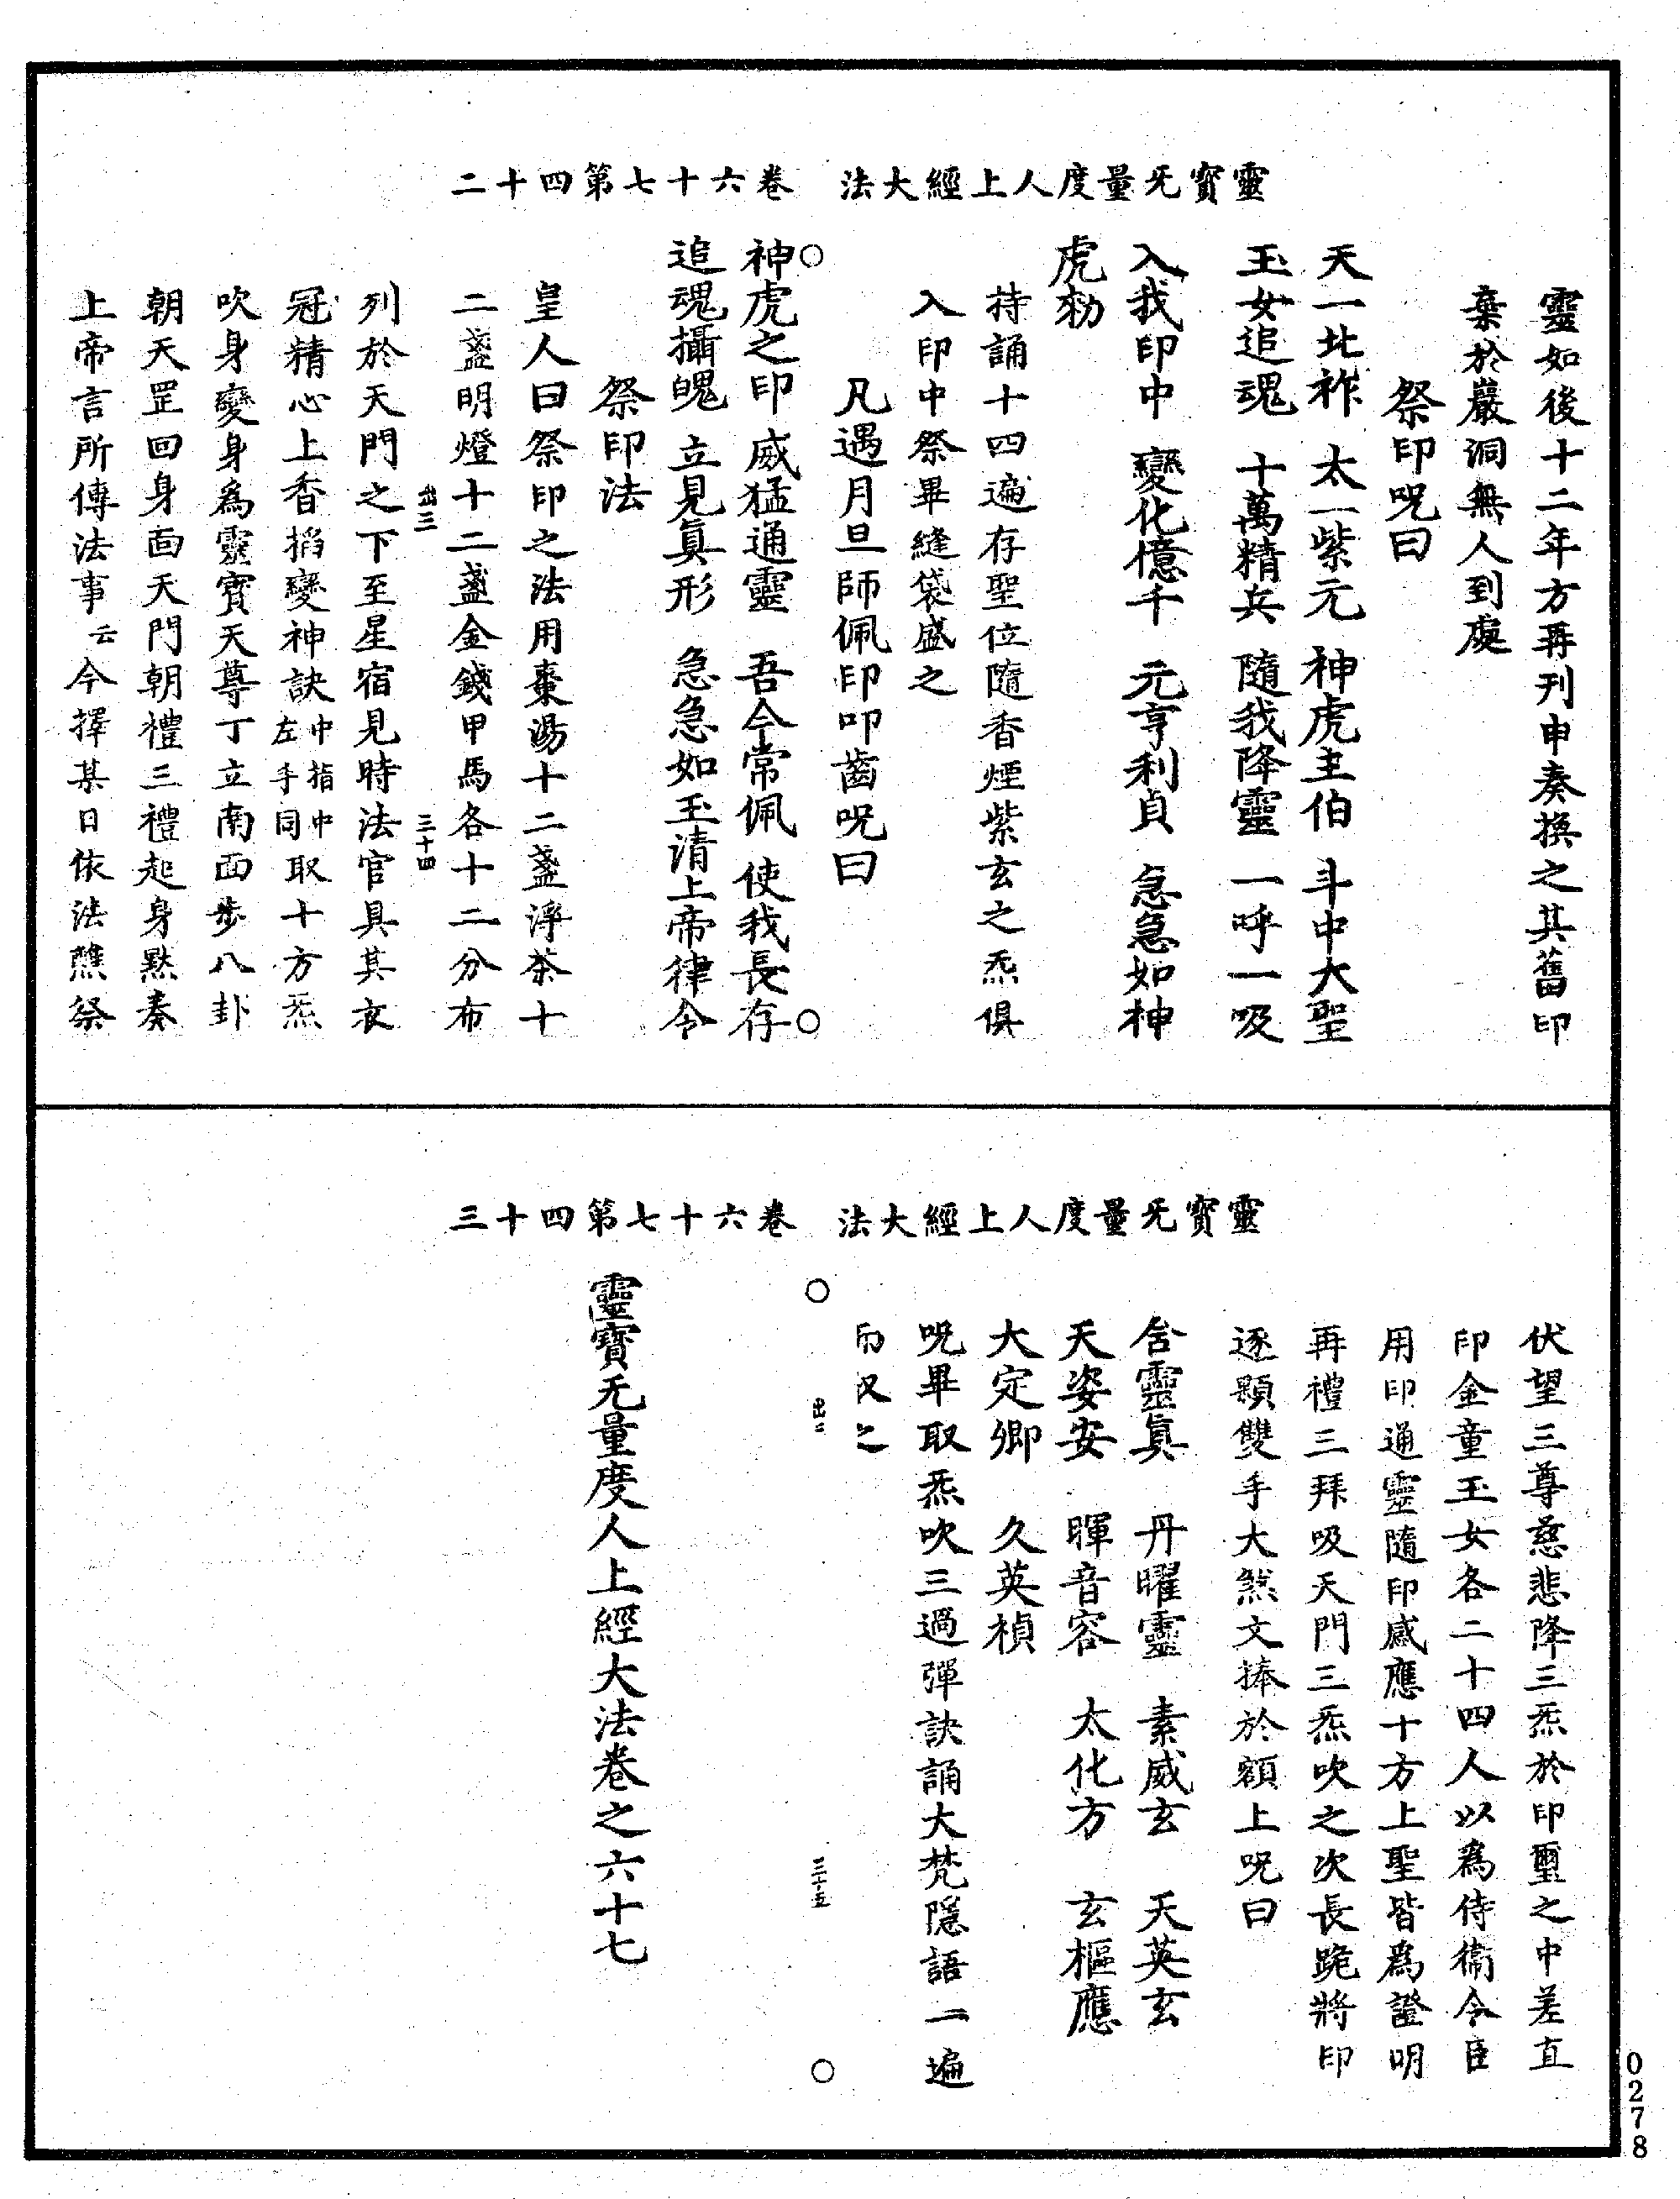 靈寶旡量度人上經大法　卷六十七第四十二
靈如後十二年方再刊申奏換之其舊印
棄於巖洞無人到處
祭印呪曰
天一北祚　太一紫元　神虎主伯　斗中大聖
玉女追魂　十萬精兵　隨我降靈　一呼一吸
入我印中　變化億千　元亨利貞　急急如神
虎勑
持誦十四遍存聖位隨香煙紫玄之炁俱
入印中祭畢縫袋盛之
凡遇月旦師佩印叩齒呪曰
神虎之印　威猛通靈　吾今常佩　使我長存
追魂攝魄　立見真形　急急如玉清上帝律令
祭印法
皇人曰祭印之法用棗湯十二盞淨茶十
二盞明燈十二盞金錢甲馬各十二分布
出三　三十四
列於天門之下至星宿見時法官具其衣
冠精心上香掐變神訣中指中左手同取十方炁
吹身變身為靈寶天尊丁立南面步八卦
朝天罡回身面天門朝禮三禮起身默奏
上帝言所傳法事云今擇某日依法醮祭
靈寶旡量度人上經大法　卷六十七第四十三
伏望三尊慈悲降三炁於印璽之中差直
印金童玉女各二十四人以為侍衛令臣
用印通靈隨印感應十方上聖皆為證明
再禮三拜吸天門三炁吹之次長跪將印
逐顆雙手大煞文捧於額上呪曰
含靈真　丹曜靈　素威玄　天英玄
天姿安　暉音容　太化方　玄樞應
大定卿　久英楨
呪畢取炁吹三過彈訣誦大梵隱語一遍
而収之
出二　三十五
靈寶无量度人上經大法卷之六十七
0278